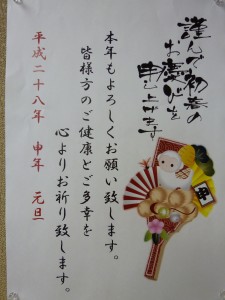 謹んで初春の
お慶びを
申し上げます
本年もよろしくお願い致します。
皆様方のご健康とご多幸を
心よりお祈り致します。
平成二十八年 申年 元旦
申